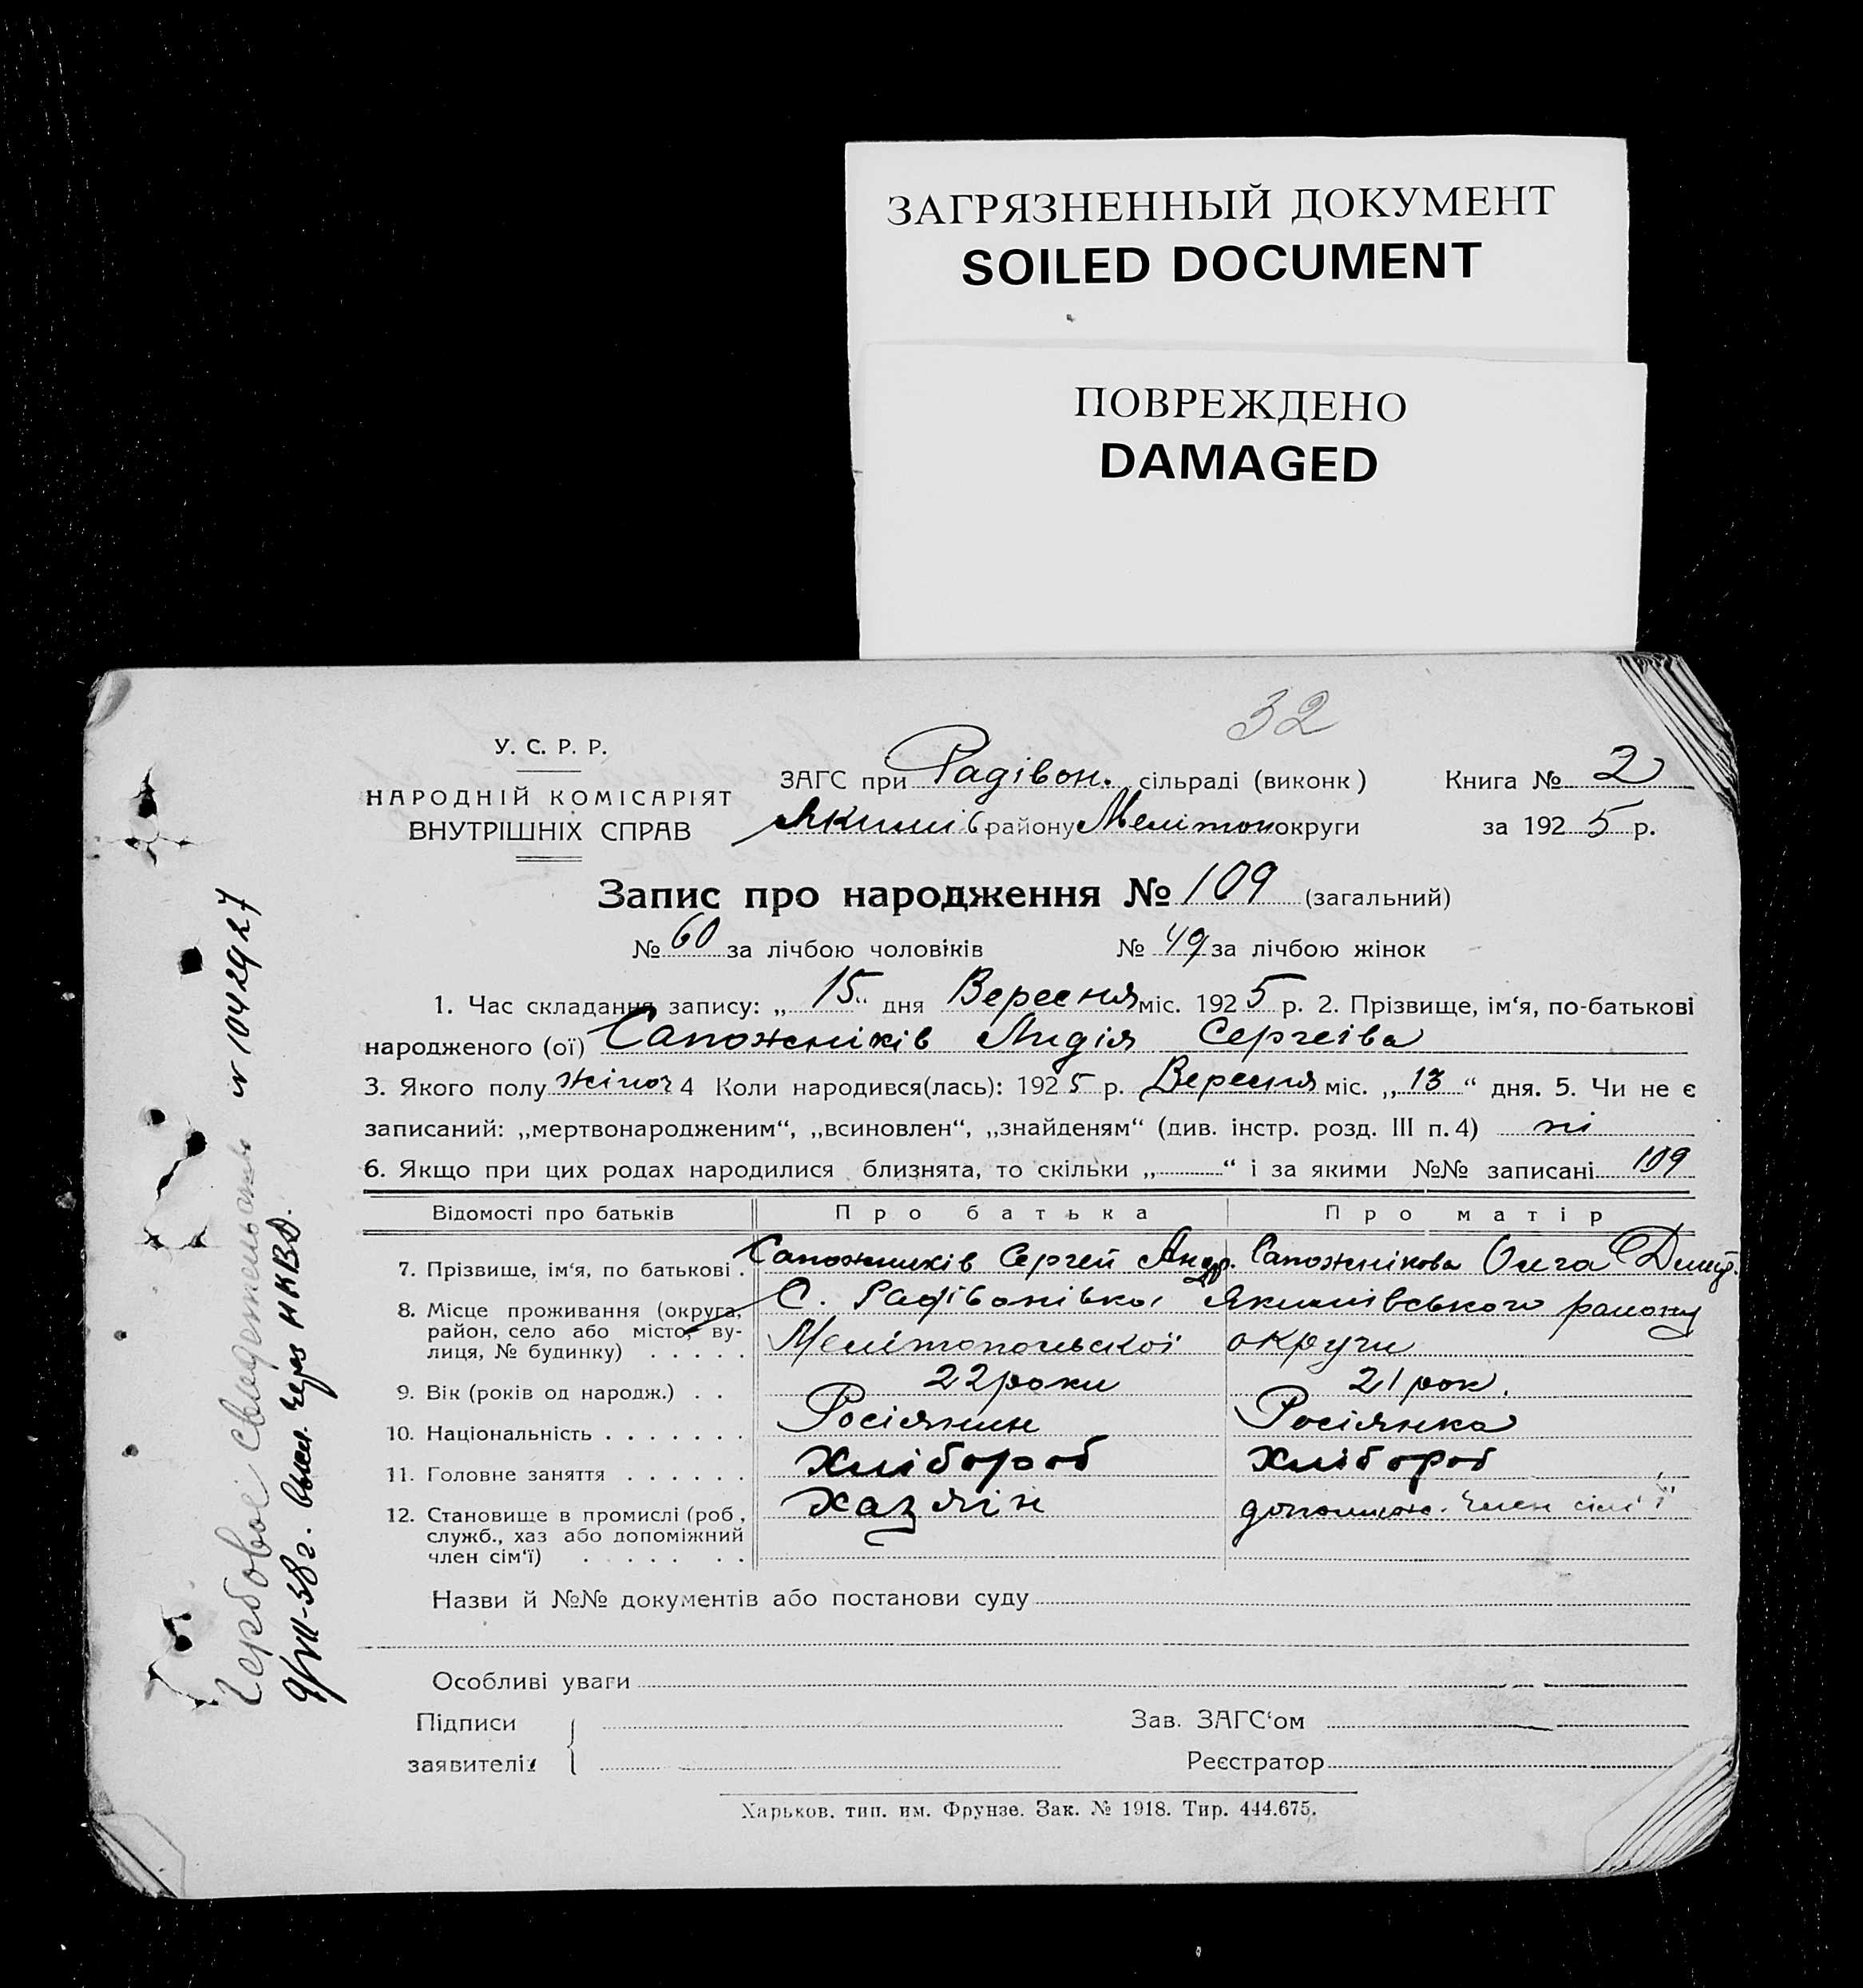 ЗАГРЯЗНЕННЫЙ ДОКУМЕНТ
SOILED DOCUMENT
ПОВРЕЖДЕНО
DAMAGED
32
У. С. Р. Р.
НАРОДНІЙ КОМІСАРІЯТ
ВНУТРІШНІХ СПРАВ
ЗАГС при Радівон. сільраді (виконк) Книга № 2
Якимів району Мелітоп округи за 1925 р.
Запис про народження № 109 (загальний)
№ 60 за лічбою чоловіків № 49 за лічбою жінок
1. Час складання запису: „15" дня Вересня міс. 1925 р. 2. Прізвище, ім'я, по-батькові
народженого (ої) Сапожніків Лидія Сергеіва
3. Якого полу жіноч 4 Коли народився(лась): 1925 р. Вересня міс. „13" дня. 5. Чи не є
записаний: „мертвонародженим", „всиновлен", „знайденям" (див. інстр. розд. III п. 4) ні
6. Якщо при цих родах народилися близнята, то скільки „ " і за якими №№ записані 109
Відомості про батьків Про батька Про матір
7. Прізвище, ім'я, по батькові . Сапожників Сергей Андр. Сапожнікова Ольга Дмит.
8. Місце проживання (округа, С. Радівонівка Якимівського району
район, село або місто, ву-
лиця, № будинку) . . . . . Мелітопольскої округи
9. Вік (років од народж.) . . 22 роки 21 рок.
10. Національність . . . . . . . Росіянин Росіянка
11. Головне заняття . . . . . . Хлібороб Хлібороб
12. Становище в промислі (роб, Хазяїн допоміжн. член сім'ї
служб., хаз або допоміжний
член сім'ї) . . . . . . .
Назви й №№ документів або постанови суду
Особливі уваги
Підписи Зав. ЗАГС'ом
заявителів Реєстратор
Харьков. тип. им. Фрунзе. Зак. № 1918. Тир. 444.675.
Гербовое свидетельство № 1042927
9/VII-38 г. высл. через НКВД.